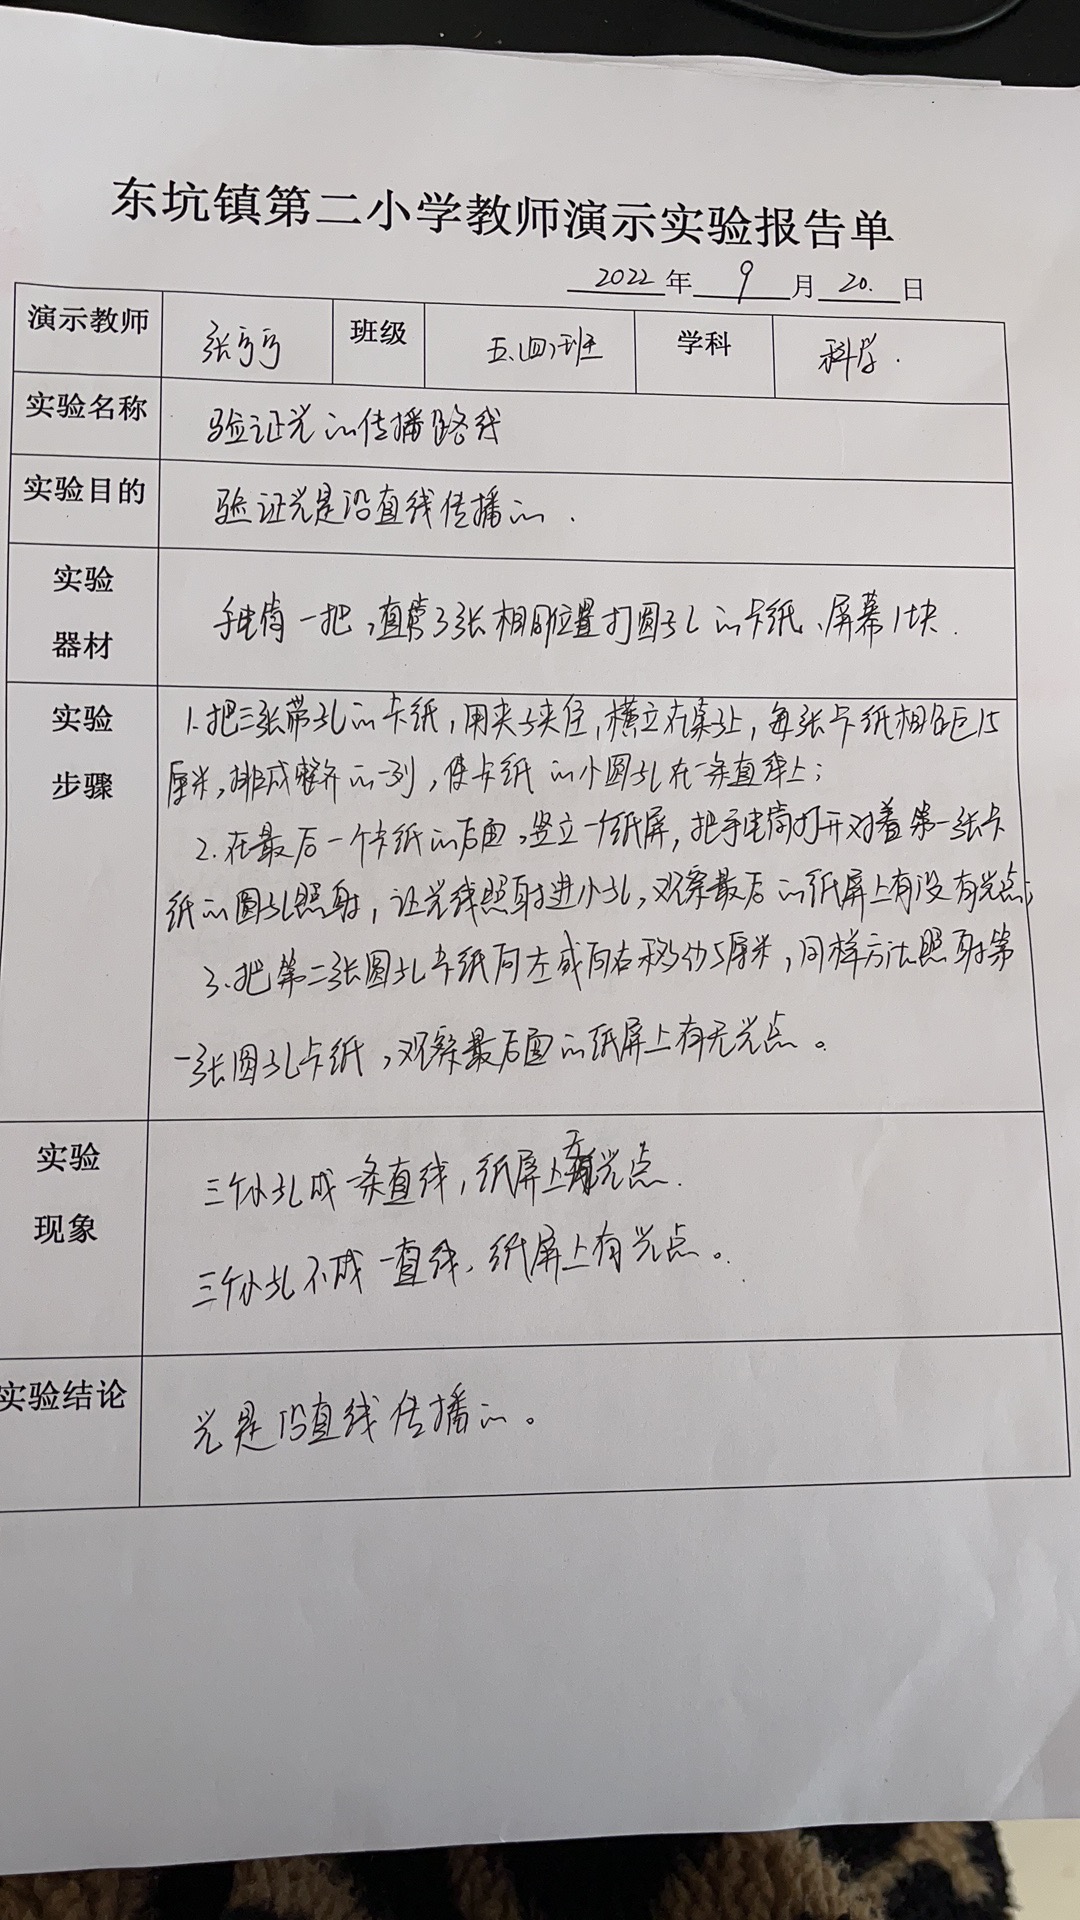 东坑镇第二小学教师演示实验报告单
2022年 9 月 20. 日
演示教师 张亏亏 班级 五、(四)班 学科 科学.
实验名称 验证光的传播路线
实验目的 验证光是沿直线传播的.
实验
器材
手电筒一把,直 3张相同位置打圆孔的卡纸、屏幕1块.
实验
步骤
1.把三张带孔的卡纸,用夹子夹住,横立在桌上,每张卡纸相距15
厘米,排成整齐的一列,使卡纸的小圆孔在一条直线上;
2.在最后一个卡纸的后面,竖立一个纸屏,把手电筒打开对着第一张卡
纸的圆孔照射,让光线照射进小孔,观察最后的纸屏上有没有光点;
3.把第二张圆孔卡纸向左或向右移动5厘米,同样方法照射第
一张圆孔卡纸,观察最后面的纸屏上有无光点。
实验
现象
三个小孔成一条直线,纸屏上无光点.
三个小孔不成一直线,纸屏上有光点。
实验结论 光是沿直线传播的。